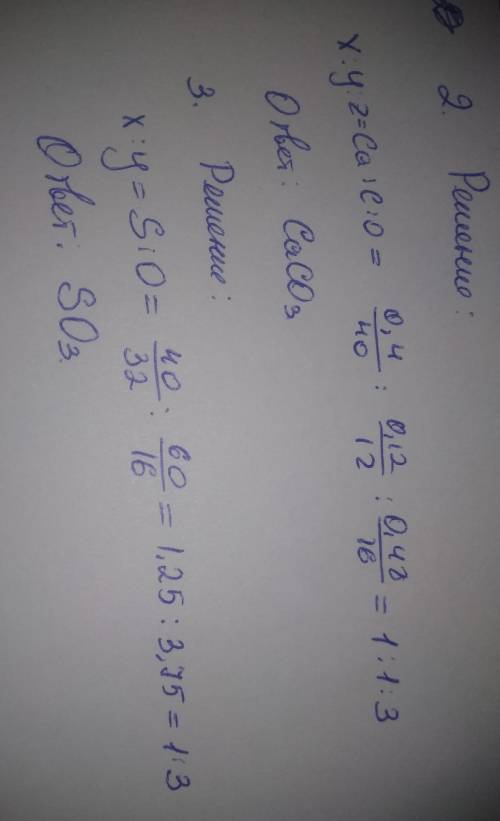 2. Решение:
x:y:z=Ca:C:O = 0,4/40 : 0,12/12 : 0,48/16 = 1:1:3
Ответ: CaCO₃
3. Решение:
x:y = S:O = 40/32 : 60/16 = 1,25:3,75 = 1:3
Ответ: SO₃.